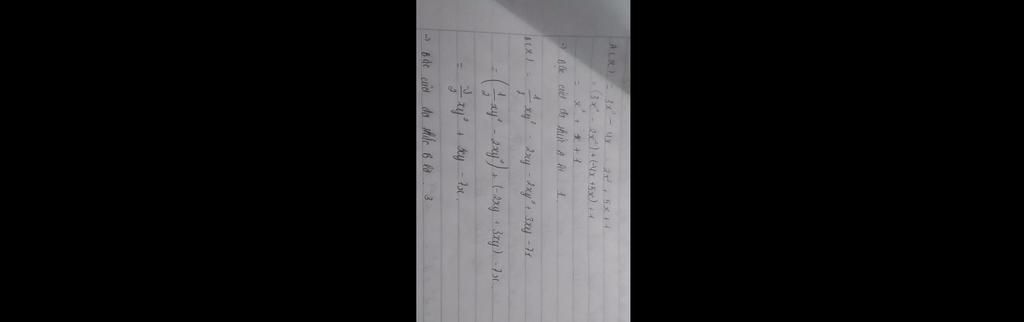 A(x) = 3x² - 4x - 2x² + 5x + 1
= (3x² - 2x²) + (-4x + 5x) + 1
= x² + x + 1
⇒ Bậc của đa thức A là 1.
B(x) = 1/2 xy² - 2xy - 2xy² + 3xy - 7x
= (1/2 xy² - 2xy²) + (-2xy + 3xy) - 7x.
= -3/2 xy² + xy - 7x.
⇒ Bậc của đa thức B là : 3